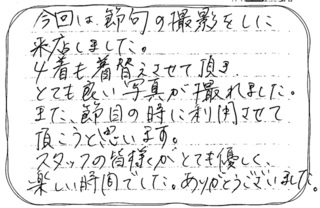 今回は、節句の撮影をしに
来店しました。
4着も着替えさせて頂き
とても良い写真が撮れました。
また、節目の時に利用させて
頂こうと思います。
スタッフの皆様がとても優しく、
楽しい時間でした。ありがとうございました。